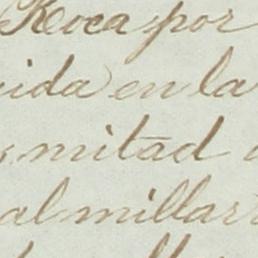 Roca por
ida en la
mitad
al millar